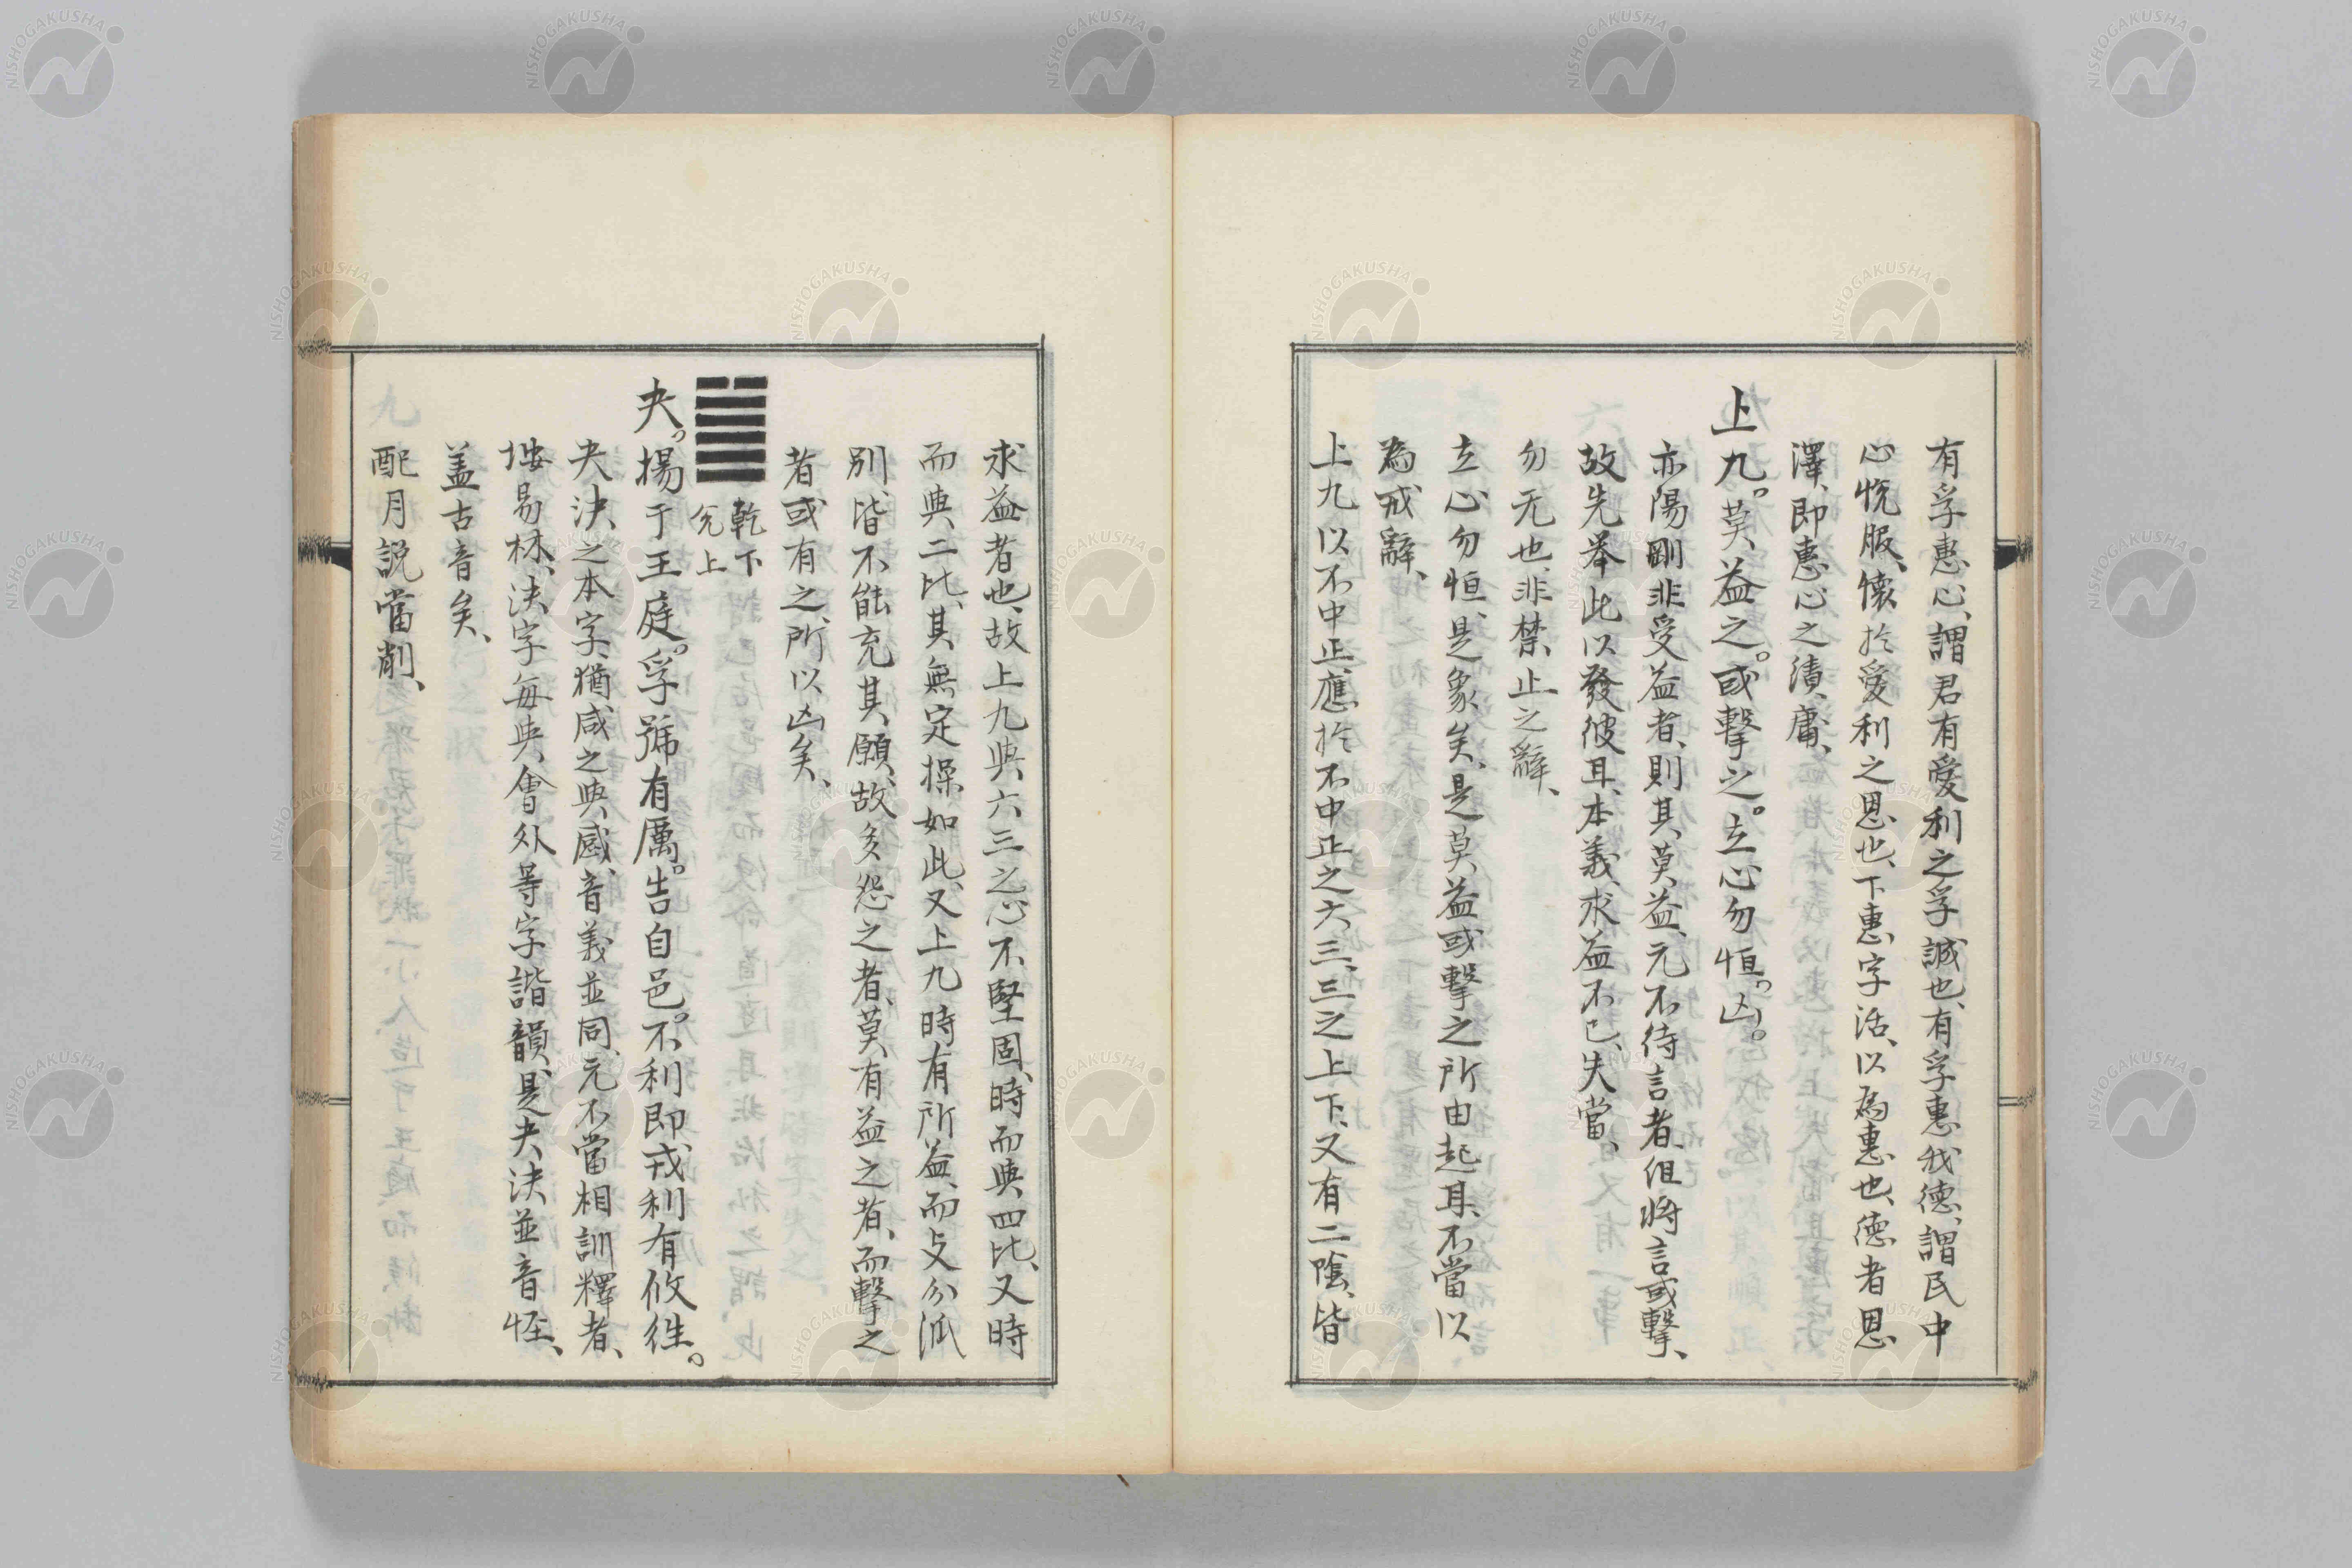 有孚惠心、謂君有愛利之孚誠也、有孚惠我德、謂民中
心悅服、懷於愛利之恩也、下惠字活、以為惠也、德者恩
澤、即惠心之漬、庸、
上九。莫益之。或擊之。立心勿恒。凶。
亦陽剛非受益者、則其莫益、元不待言者、但將言或擊、
故先舉此以發彼耳、本義、求益不已、失當、
勿无也、非禁止之辭、
立心勿恒、是象矣、是莫益或擊之所由起耳、不當以
為戒辭、
上九以不中正、應於不中正之六三、三之上下、又有二陰、皆
求益者也、故上九與六三之心不堅固、時而與四比、又時
而與二比、其無定操如此、又上九時有所益、而支分派
別、皆不能充其願、故多怨之者、莫有益之者、而擊之
者或有之、所以凶矣、
乾下
兌上
夬。揚于王庭。孚號有厲。告自邑。不利即戎利有攸往。
夬決之本字、猶咸之與感、音義並同、元不當相訓釋者、
按易林、決字每與會外等字諧韻、是夬決並音怪、
蓋古音矣、
配月說當削、
NISHOGAKUSHA